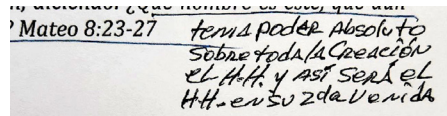 , diciendo: ¿Qué hombre es este, que aun
? Mateo 8:23-27 tenia poder Absoluto
Sobre toda la Creación
el H.H. y Así Será el
H.H. en su 2da Venida